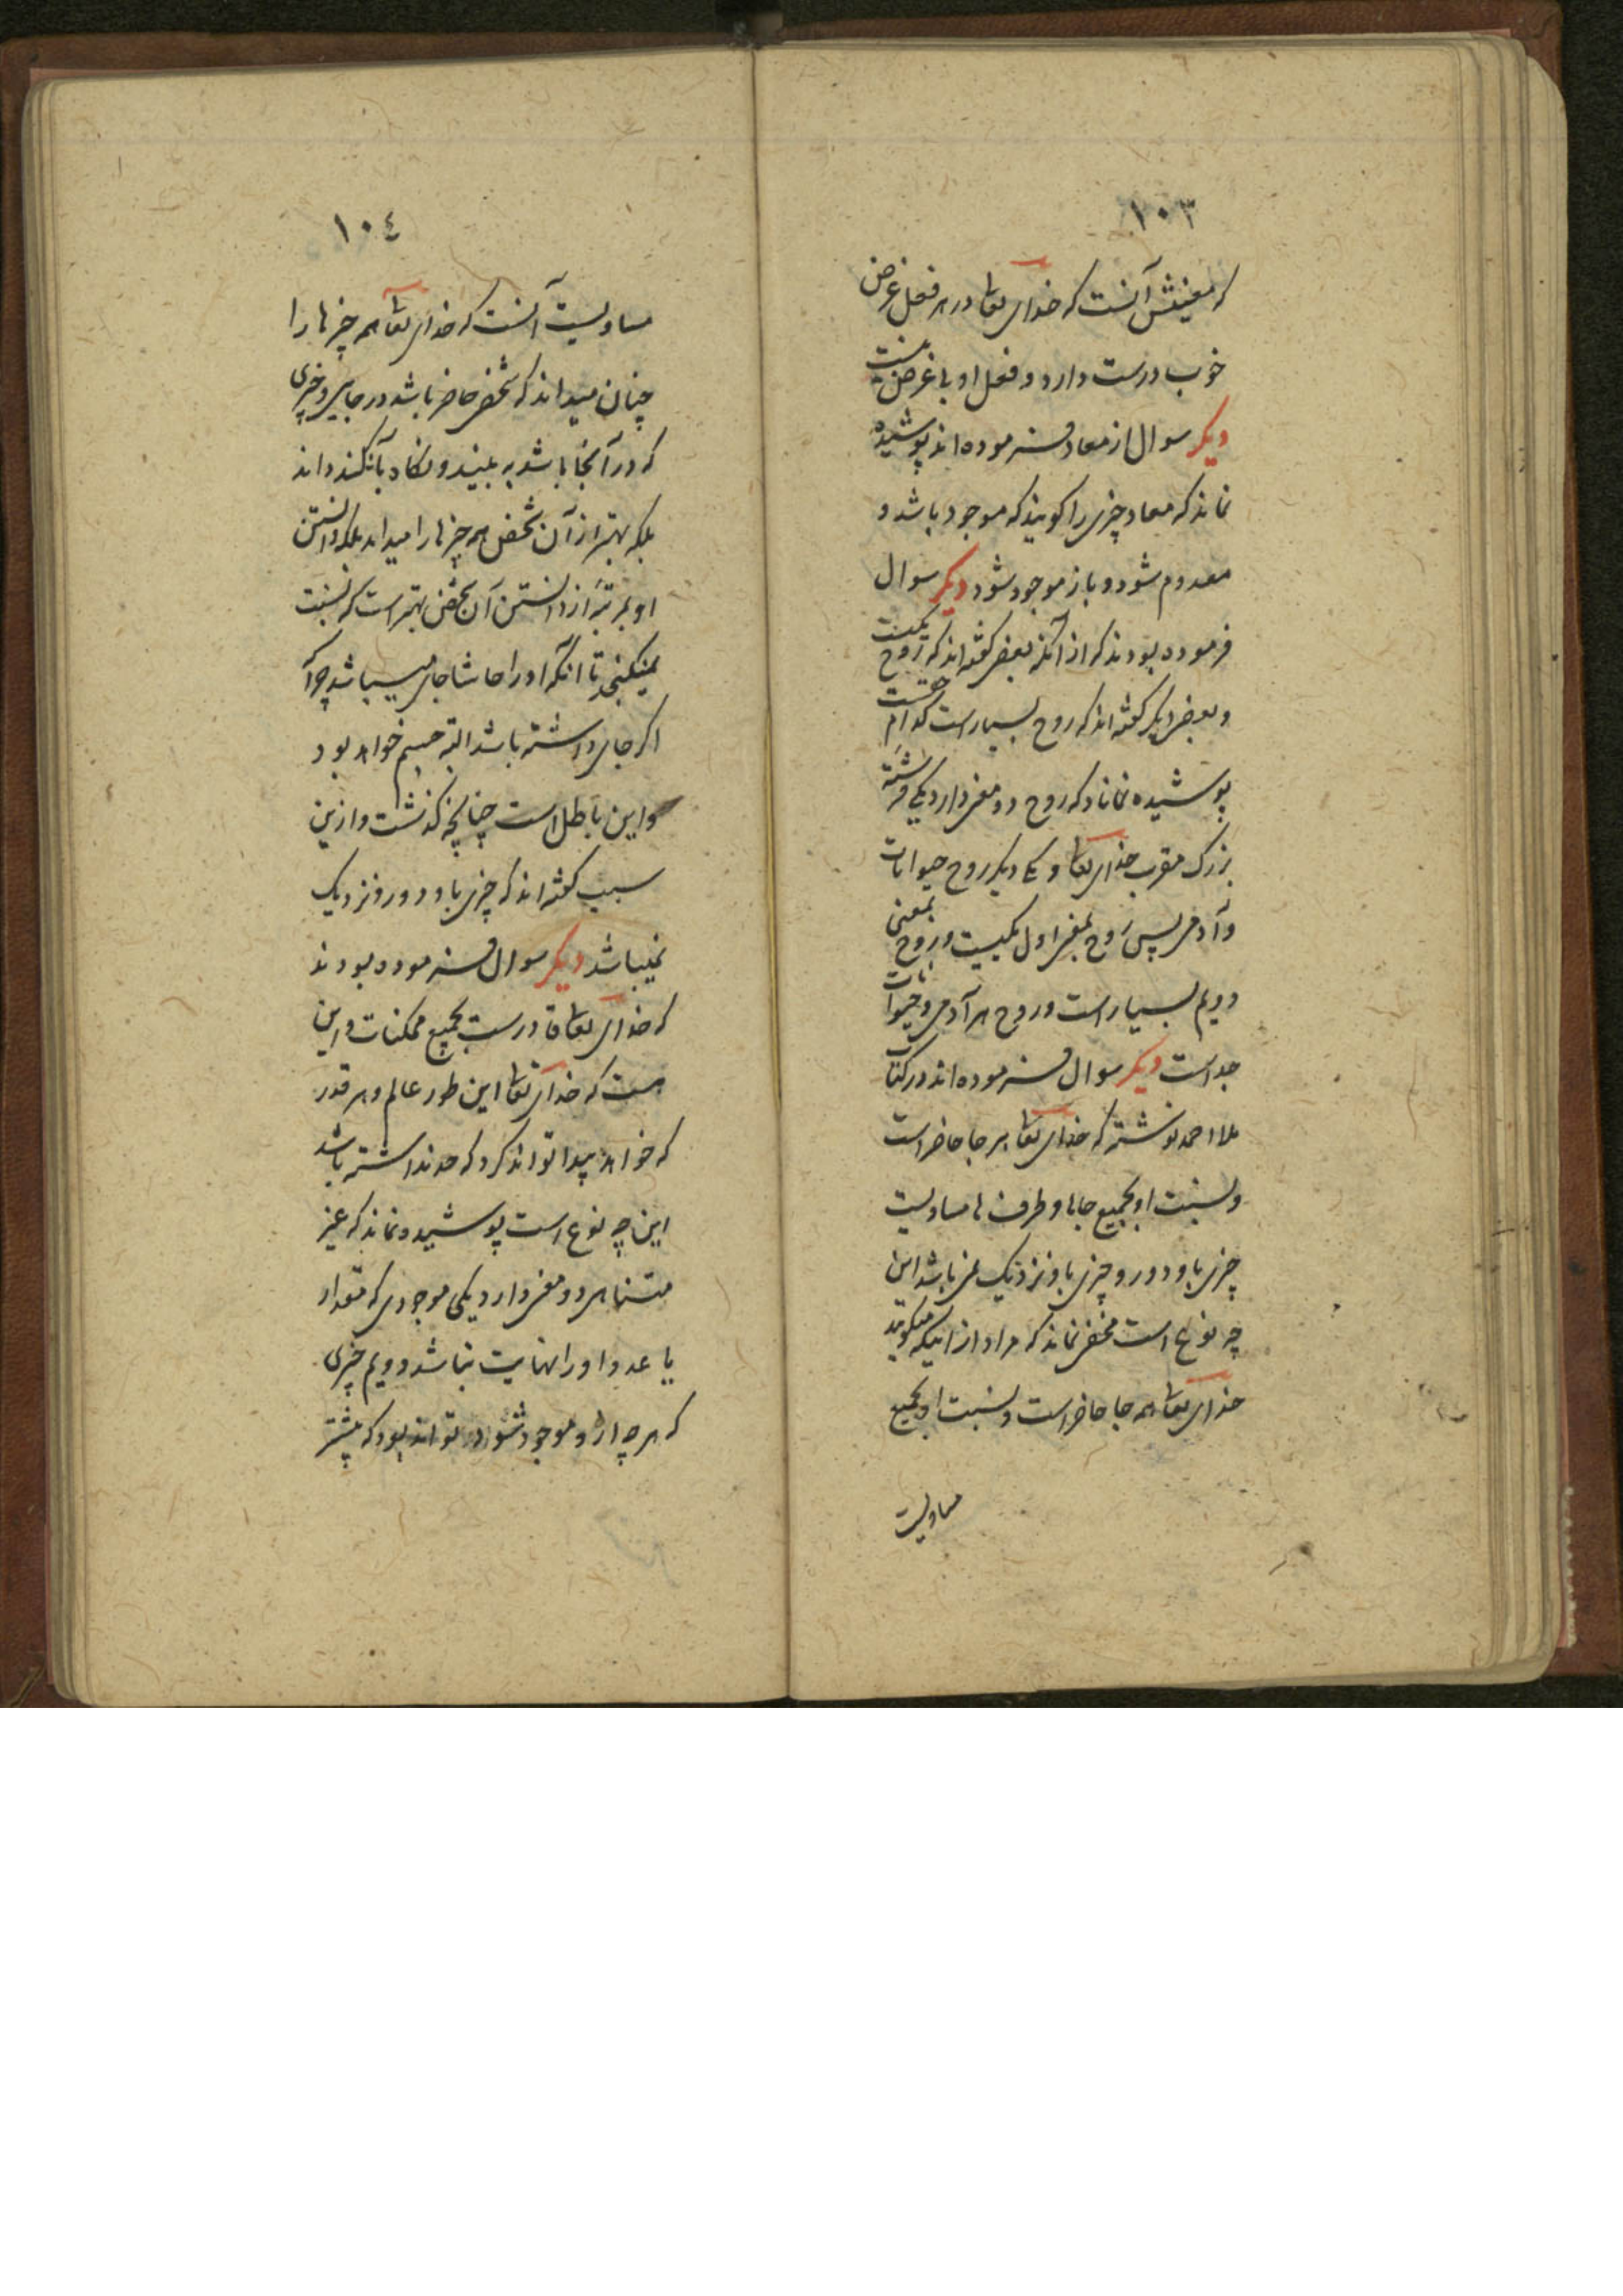 ١٠٣
که معنیش آنست که خدای تعا در هر فعل غرض
خوب درست دارد و فعل او بی غرض نیست
دیکر سوال از معاد فرموده اند پوشیده
نماند که معاد چیزی را کویند که موجود باشد و
معدوم شود و باز موجود شود دیکر سوال
فرموده بودند که از آنکه بعضی کفته اند که روح یکیست
و بعضی دیکر کفته اند که روح بسیار است کدام حقست
پوشیده نماناد که روح دو معنی دارد یکی فرشته
بزرک مقرب خدای تعا و یکی دیکر روح حیوانات
و آدمی پس روح بمعنی اول یکیست و روح بمعنی
دویم بسیار است و روح هر آدمی و حیوانات
جداست دیکر سوال فرموده اند در کتاب
ملا احمد نوشته که خدای تعا هر جا حاضر است
و نسبت او بجمیع جاها و طرف ها مساویست
چیزی باو دور و چیزی باو نزدیک نمی باشد این
چه نوع است مخفی نماند که مراد از اینکه میکویند
خدای تعا همه جا حاضر است و نسبت او بجمیع
مساویست
١٠٤
مساویست آنست که خدای تعا همه چیزها را
چنان میداند که شخصی حاضر باشد در جایی و چیزی
که در آنجا باشد به بیند و نکاه بآن کند و داند
بلکه بهتر از آن شخص همه چیزها را میداند بلکه دانستن
او بمرتبۀ از دانستن آن شخص بهتر است که نسبت
نمیکنجد تا آنکه او را حاشا جای میباشد چرا
اکر جای داشته باشد البته جسم خواهد بود
و این باطل است چنانچه کذشت و ازین
سبب کفته اند که چیزی باو دور و نزدیک
نمیباشد دیکر سوال فرموده بودند
که خدای تعا قادرست بجمیع ممکنات و این
هست که خدای تعا این طور عالم و هر قدر
که خواهد پیدا تواند کرد که حد نداشته باشد
این چه نوع است پوشیده نماند که غیر
متناهی دو معنی دارد یکی موجودی که مقدار
یا عدد او را نهایت نباشد دویم چیزی
که هر چه ازو موجود شود تواند بود که بیشتر